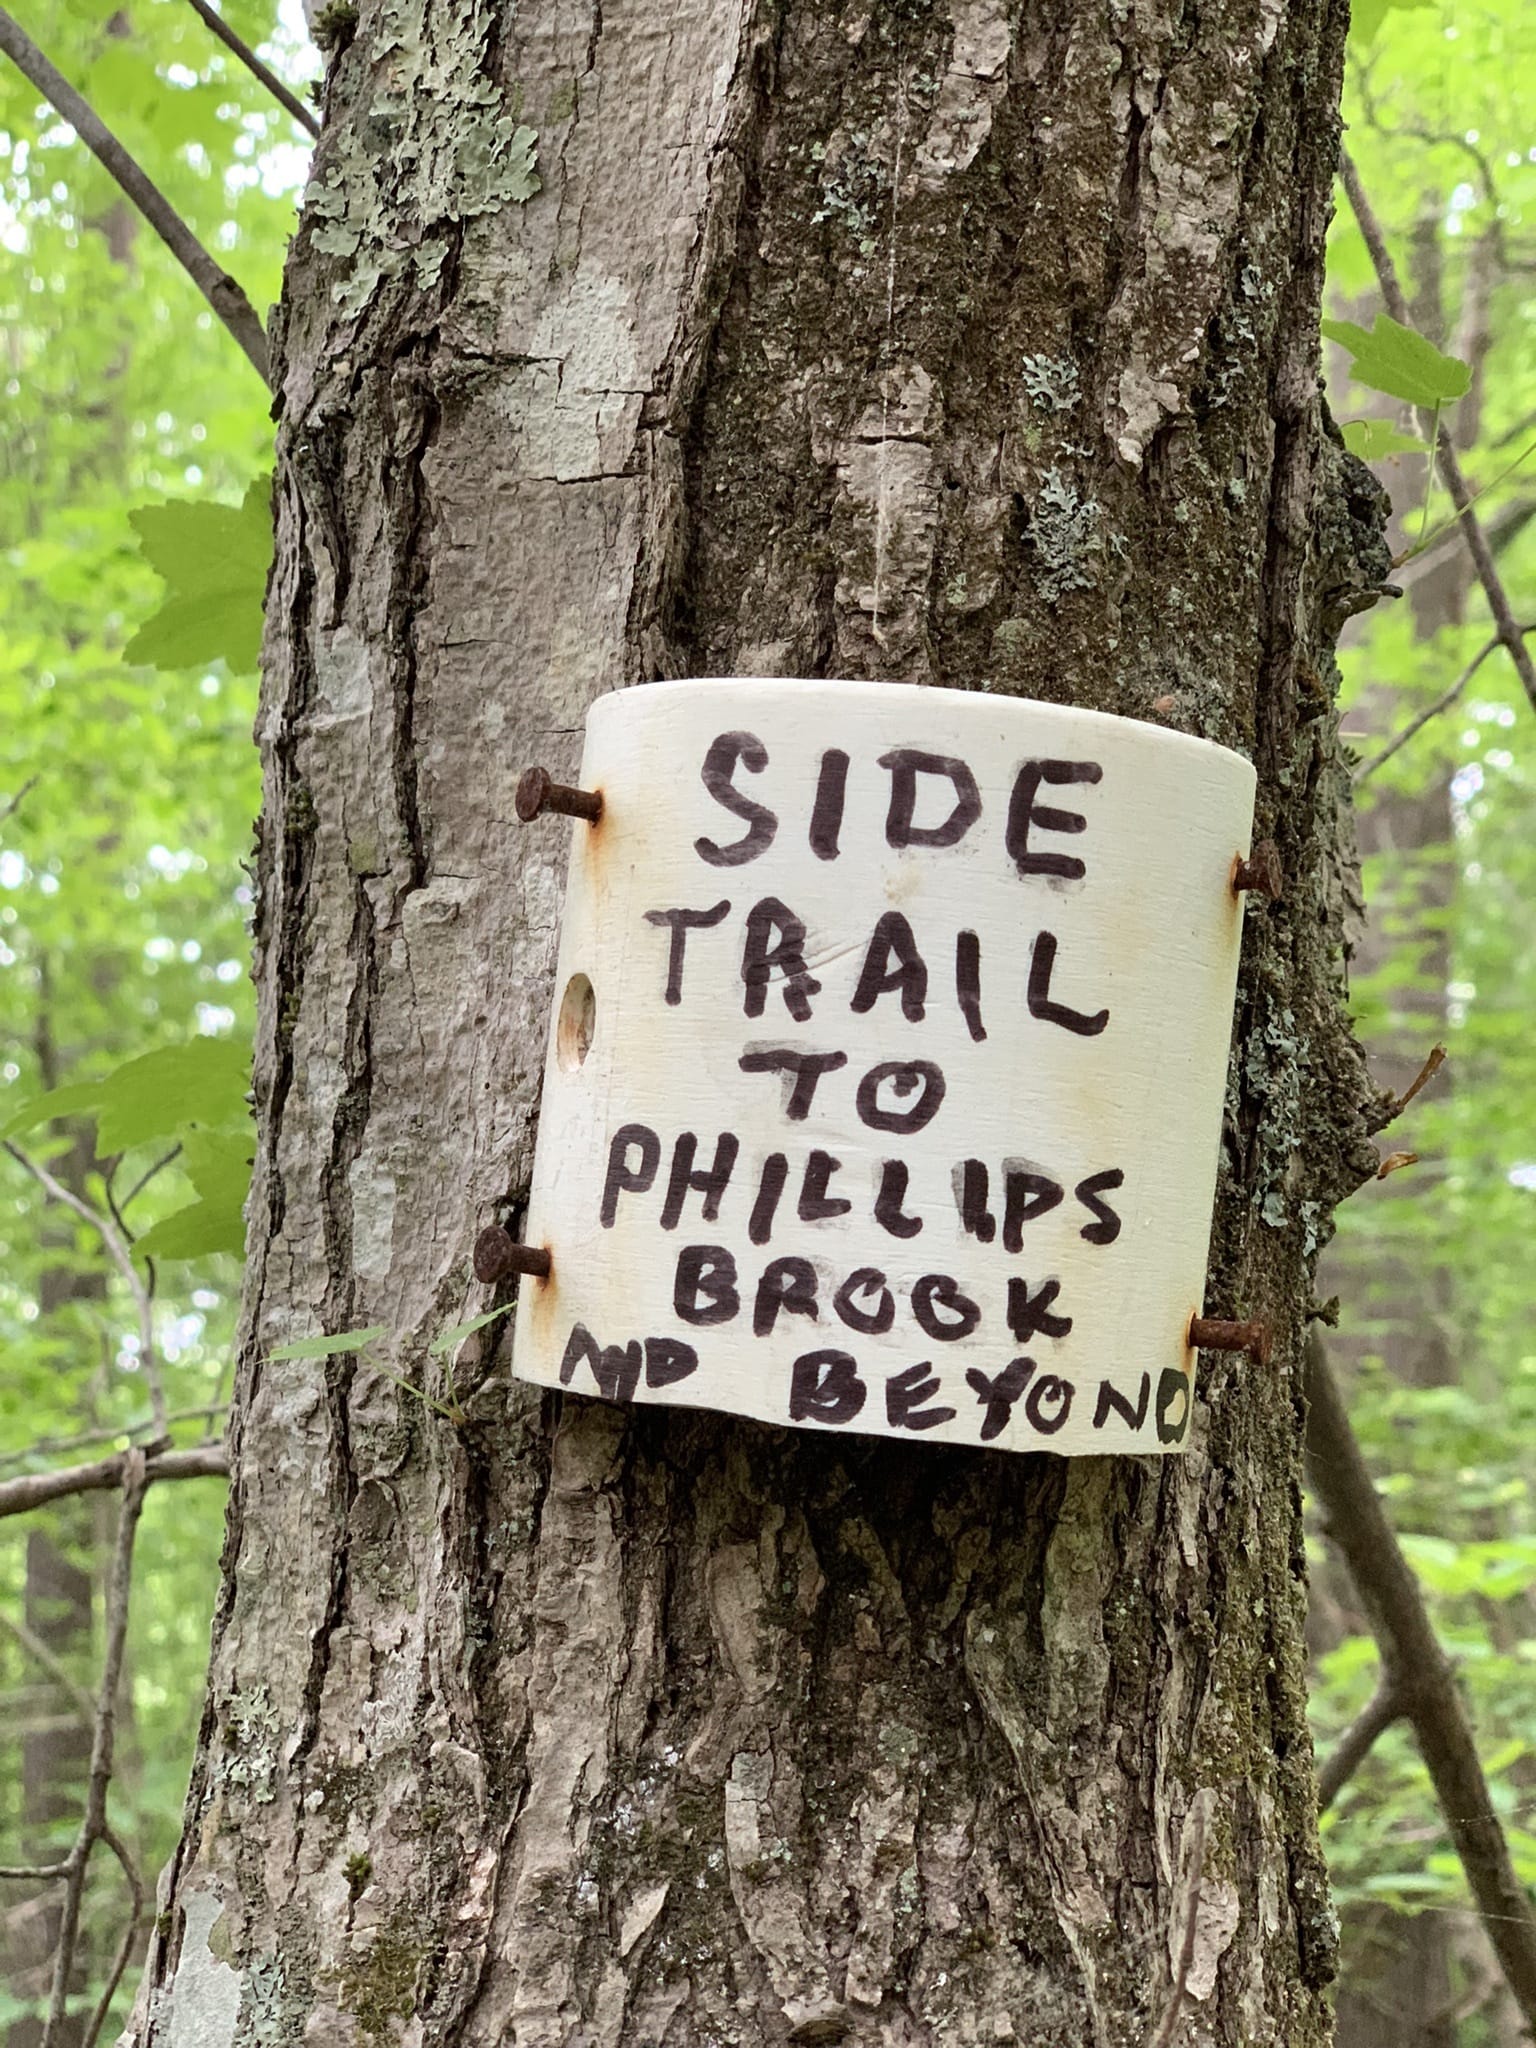 SIDE
TRAIL
TO
PHILLIPS
BROOK
AND BEYOND